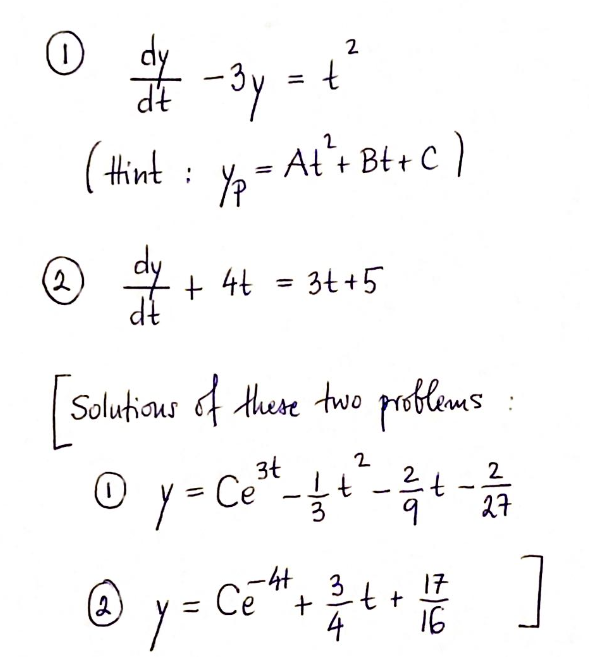 ① dy/dt - 3y = t²
(Hint : y_p = At² + Bt + C)
② dy/dt + 4t = 3t + 5
[Solutions of these two problems :
① y = Ce^{3t} - 1/3 t² - 2/9 t - 2/27
② y = Ce^{-4t} + 3/4 t + 17/16 ]